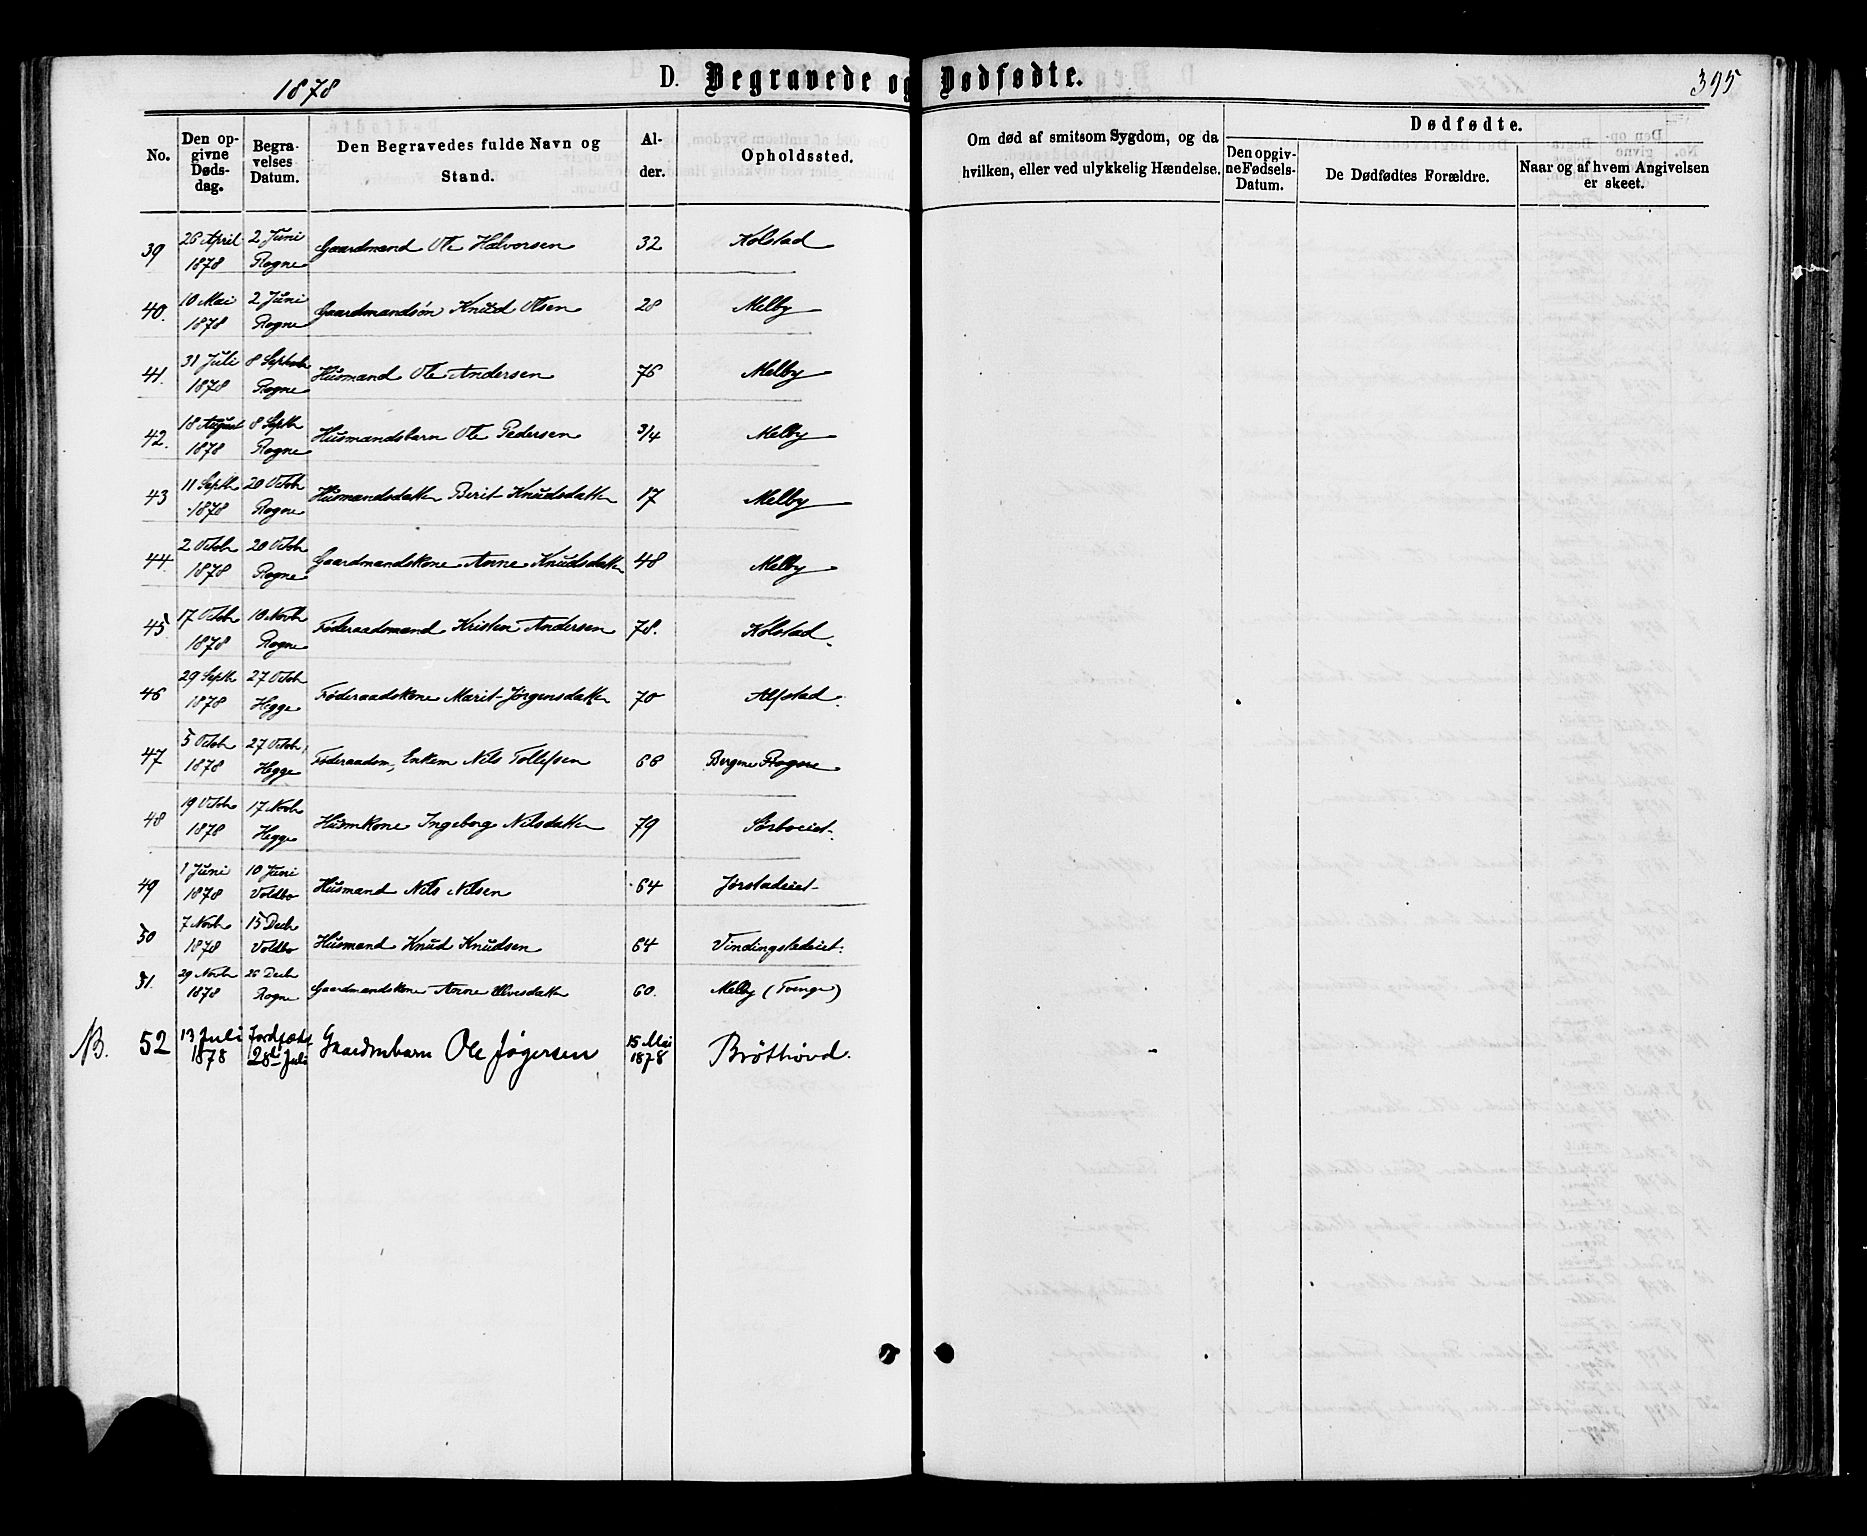 1878
D. Begravede og Dødfødte.
395
No.
Den opgivne Dødsdag.
Begravelses Datum.
Den Begravedes fulde Navn og Stand.
Alder.
Opholdssted.
Om død af smitsom Sygdom, og da hvilken, eller ved ulykkelig Hændelse.
Dødfødte.
Den opgivne Fødsels-Datum.
De Dødfødtes Forældre.
Naar og af hvem Angivelsen er skeet.
39 26 April 1878 2 Juni Rogne Gaardmand Ole Halvorsen 32 Kolstad
40. 10 Mai 1878 2 Juni Rogne Gaardmandsøn Knud Olsen 28 Melby
41. 31 Juli 1878 8 Septbr Rogne Husmand Ole Andersen 76 Melby
42. 18 August 1878 8 Septb Rogne Husmandsbarn Ole Pedersen 3/4 Melby
43 11 Septb 1878 20 Octob Rogne Husmandsdatter Berit Knudsdatter 17 Melby
44. 2 Octob 1878 20 Octob Rogne Gaardmandskone Anne Knudsdatter 48 Melby
45 17 Octob 1878 10 Novb Rogne Føderaadsmand Kristen Andersen 78. Kolstad
46 29 Septb 1878 27 Octob Hegge Føderaadskone Marit Jørgensdatter 70 Alfstad.
47 5 Octob 1878 27 Octob Hegge Føderaadsm, Enkem Nils Tollefsen 66 Bergene Rogne
48 19 Octob 1878 17 Novb Hegge Husmkone Ingeborg Nilsdatter 79 Sørboeiet
49 1 Juni 1878 10 Juni Voldbo Husmand Nils Nilsen 64 Jørstadeiet
50 7 Novb 1878 15 Decb Voldbo Husmand Knud Knudsen 64 Vindingstadeiet.
51. 29 Novb 1878 26 Decb Rogne Gaardmandskone Anne Ulvesdatter 60. Melby (Tvenge)
NB. 52 13 Juli 1878 Jordfæst 28de Juli Gaardmbarn Ole Jøgersen 15 Mai 1878 Brøthovd.